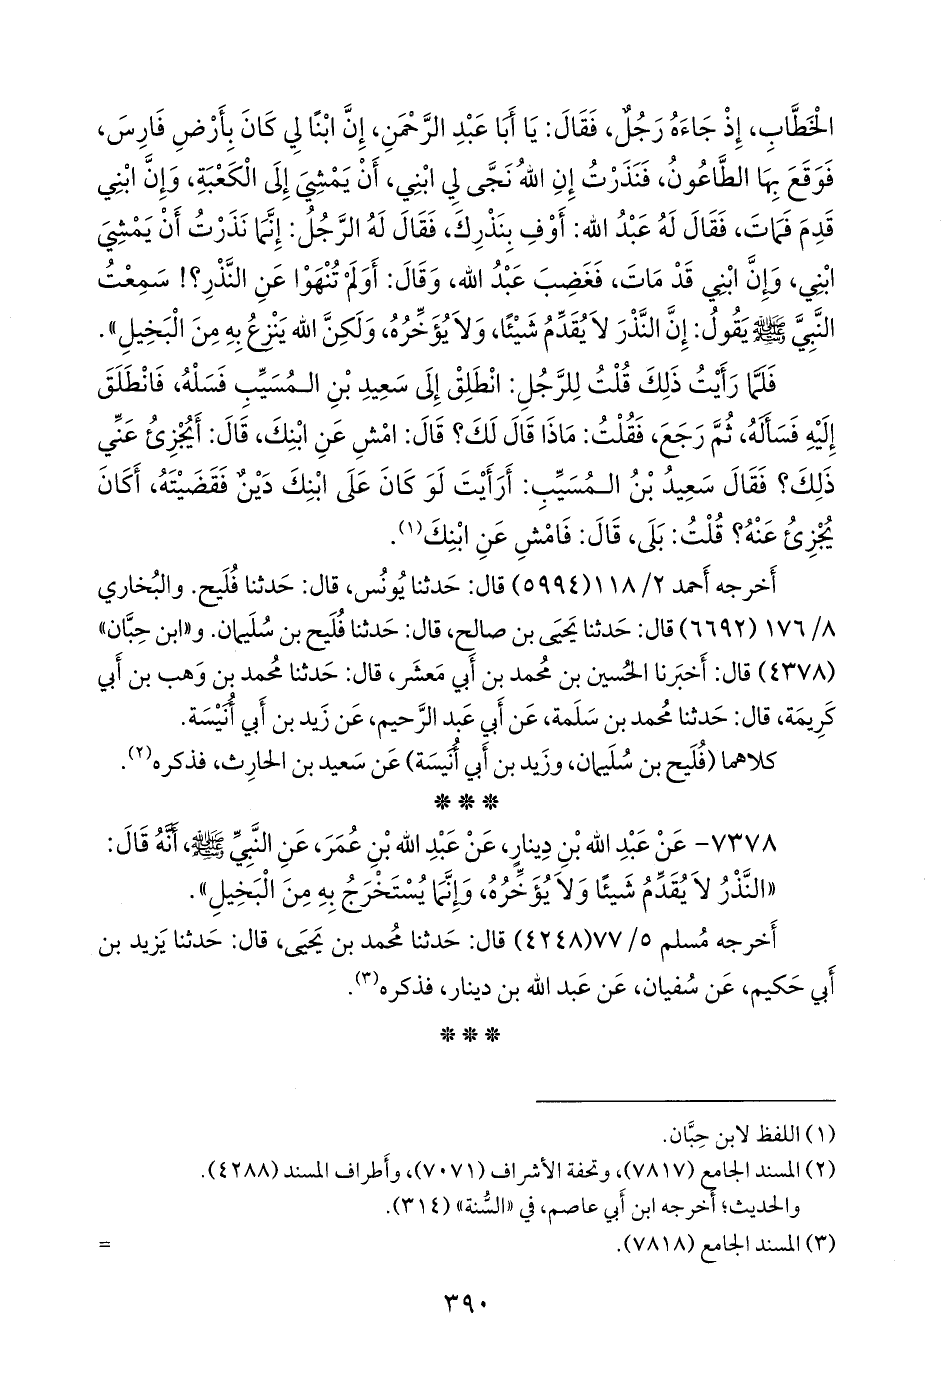 الخَطَّابِ، إِذْ جَاءَهُ رَجُلٌ، فَقَالَ: يَا أَبَا عَبْدِ الرَّحْمَنِ، إِنَّ ابْنًا لِي كَانَ بِأَرْضِ فَارِسَ،
فَوَقَعَ بِهَا الطَّاعُونُ، فَنَذَرْتُ إِنِ اللهُ نَجَّى لِي ابْنِي، أَنْ يَمْشِيَ إِلَى الْكَعْبَةِ، وَإِنَّ ابْنِي
قَدِمَ فَمَاتَ، فَقَالَ لَهُ عَبْدُ الله: أَوْفِ بِنَذْرِكَ، فَقَالَ لَهُ الرَّجُلُ: إِنَّمَا نَذَرْتُ أَنْ يَمْشِيَ
ابْنِي، وَإِنَّ ابْنِي قَدْ مَاتَ، فَغَضِبَ عَبْدُ الله، وَقَالَ: أَوَلَمْ تُنْهَوْا عَنِ النَّذْرِ؟! سَمِعْتُ
النَّبِيَّ ﷺ يَقُولُ: إِنَّ النَّذْرَ لاَ يُقَدِّمُ شَيْئًا، وَلاَ يُؤَخِّرُهُ، وَلَكِنَّ الله يَنْزِعُ بِهِ مِنَ الْبَخِيلِ».
فَلَمَّا رَأَيْتُ ذَلِكَ قُلْتُ لِلرَّجُلِ: انْطَلِقْ إِلَى سَعِيدِ بْنِ الـمُسَيِّبِ فَسَلْهُ، فَانْطَلَقَ
إِلَيْهِ فَسَأَلَهُ، ثُمَّ رَجَعَ، فَقُلْتُ: مَاذَا قَالَ لَكَ؟ قَالَ: امْشِ عَنِ ابْنِكَ، قَالَ: أَيُجْزِئُ عَنِّي
ذَلِكَ؟ فَقَالَ سَعِيدُ بْنُ الـمُسَيِّبِ: أَرَأَيْتَ لَو كَانَ عَلَى ابْنِكَ دَيْنٌ فَقَضَيْتَهُ، أَكَانَ
يُجْزِئُ عَنْهُ؟ قُلْتُ: بَلَى، قَالَ: فَامْشِ عَنِ ابْنِكَ(١).
أَخرجه أَحمد ٢/ ١١٨(٥٩٩٤) قال: حَدثنا يُونُس، قال: حَدثنا فُلَيح. والبُخاري
٨/ ١٧٦ (٦٦٩٢) قال: حَدثنا يَحيَى بن صالح، قال: حَدثنا فُلَيح بن سُلَيمان. و«ابن حِبَّان»
(٤٣٧٨) قال: أَخبَرنا الحُسين بن مُحمد بن أَبي مَعشَر، قال: حَدثنا مُحمد بن وَهب بن أَبي
كَرِيمَة، قال: حَدثنا مُحمد بن سَلَمة، عَن أَبي عَبد الرَّحيم، عَن زَيد بن أَبي أُنَيْسَة.
كلاهما (فُلَيح بن سُلَيمان، وزَيد بن أَبي أُنَيسَة) عَن سَعيد بن الحارِث، فذكره(٢).
* * *
٧٣٧٨- عَنْ عَبْدِ الله بْنِ دِينارٍ، عَنْ عَبْدِ الله بْنِ عُمَرَ، عَنِ النَّبِيِّ ﷺ، أَنَّهُ قَالَ:
«النَّذْرُ لاَ يُقَدِّمُ شَيئًا وَلاَ يُؤَخِّرُهُ، وَإِنَّمَا يُسْتَخْرَجُ بِهِ مِنَ الْبَخِيلِ».
أَخرجه مُسلم ٥/ ٧٧(٤٢٤٨) قال: حَدثنا مُحمد بن يَحيَى، قال: حَدثنا يَزيد بن
أَبي حَكيم، عَن سُفيان، عَن عَبد الله بن دينار، فذكره(٣).
* * *
(١) اللفظ لابن حِبَّان.
(٢) المسند الجامع (٧٨١٧)، وتحفة الأشراف (٧٠٧١)، وأَطراف المسند (٤٢٨٨).
والحديث؛ أَخرجه ابن أَبي عاصم، في «السُّنة» (٣١٤).
(٣) المسند الجامع (٧٨١٨). =
٣٩٠